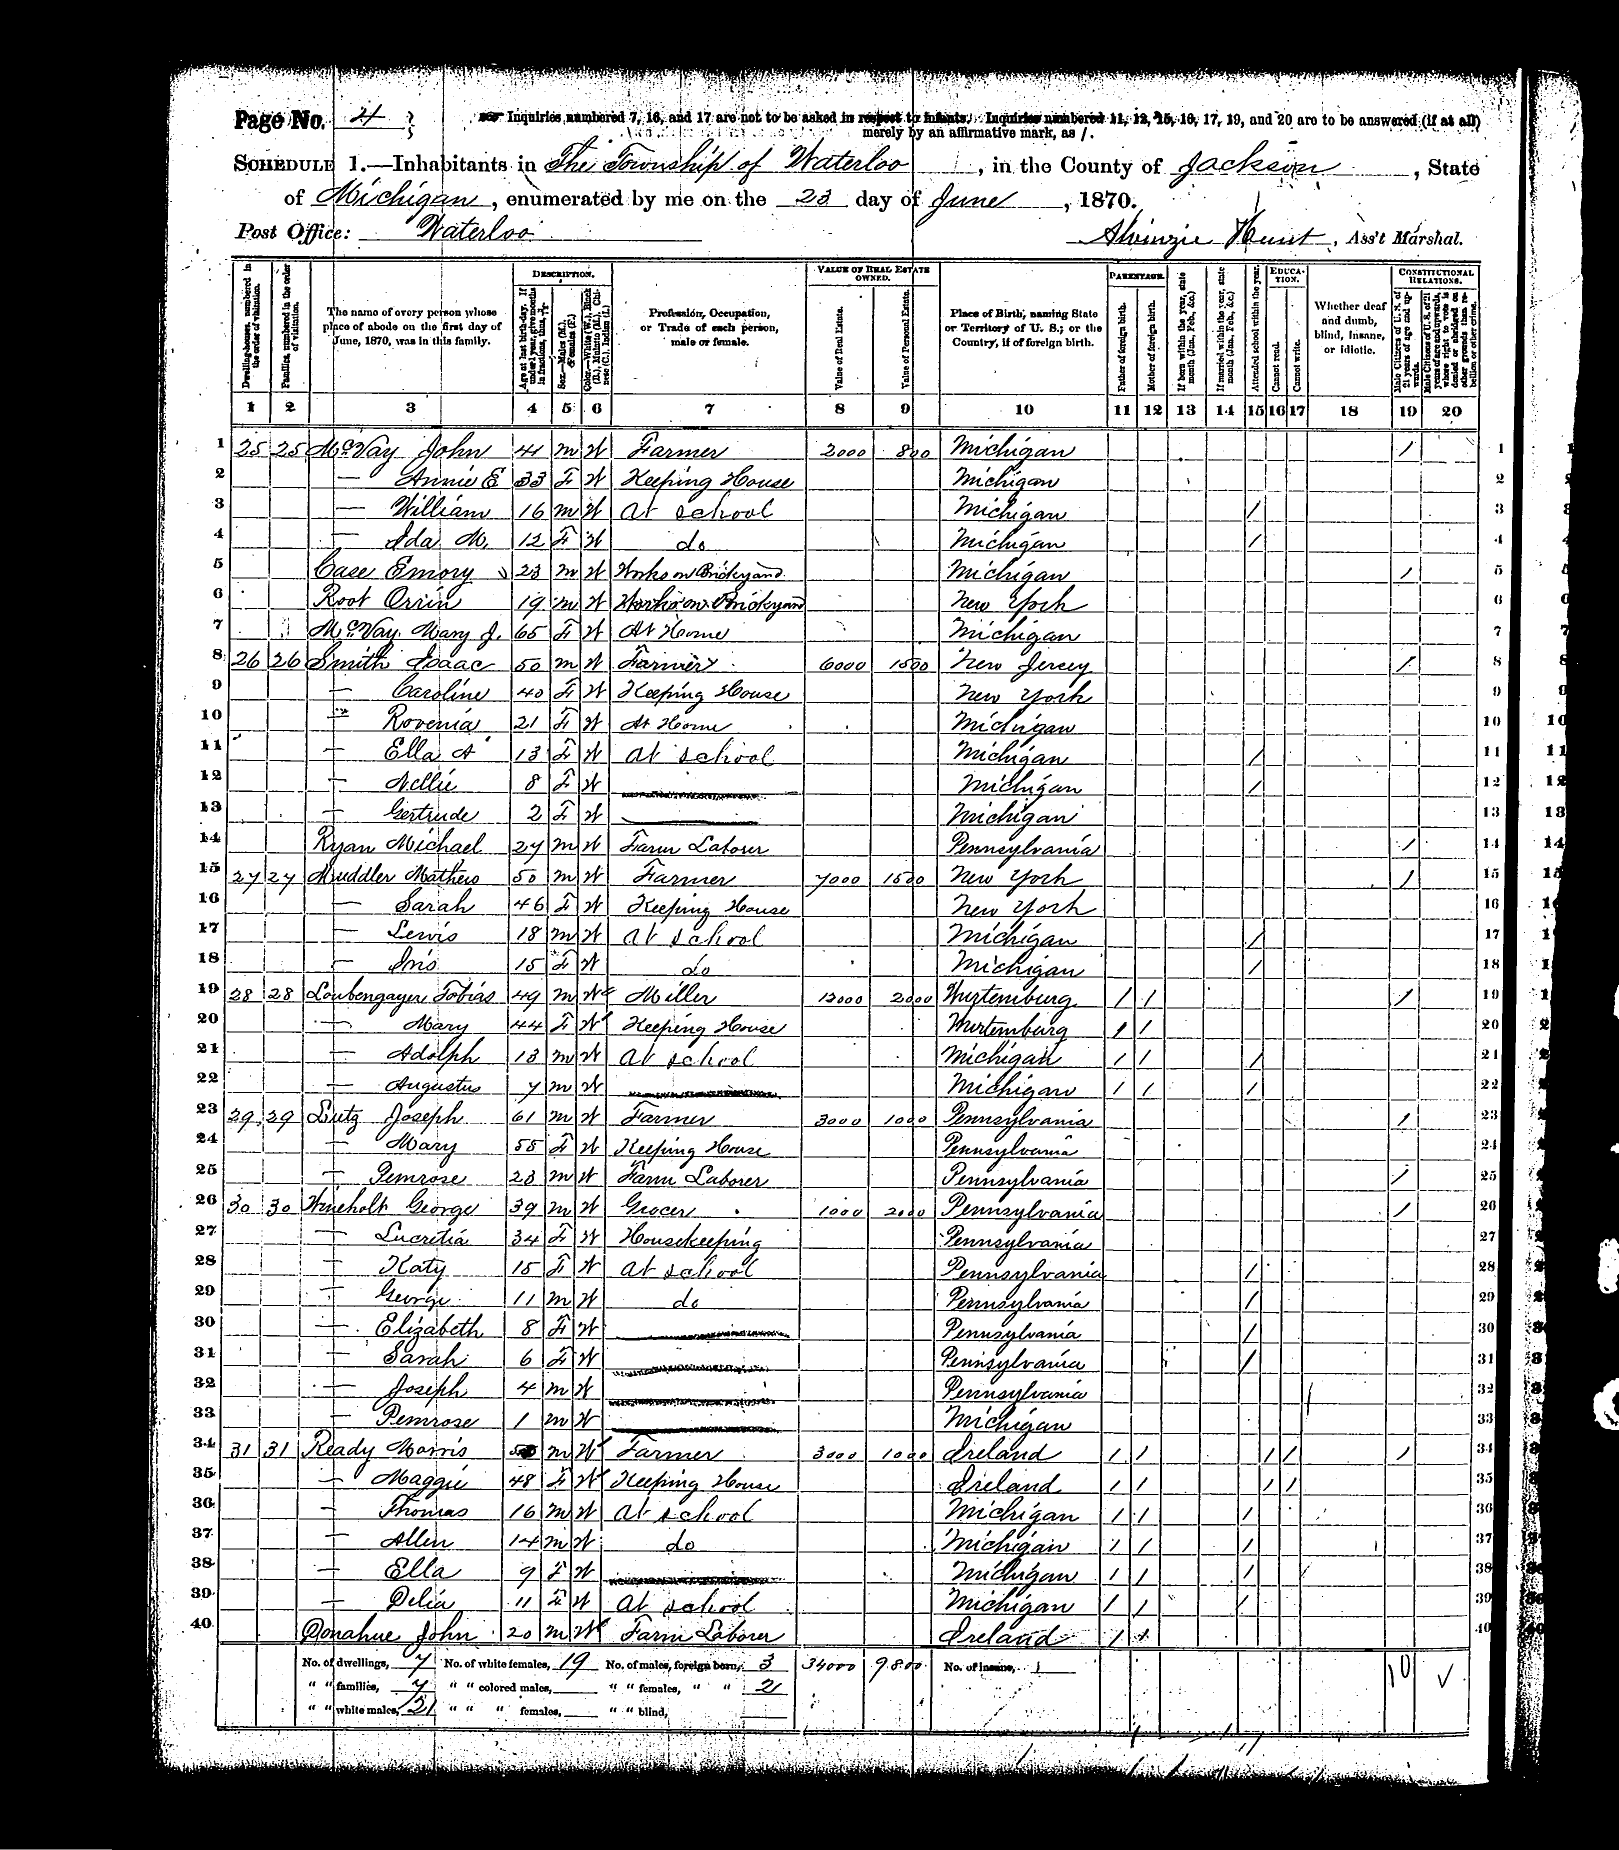 Page No. 4
Inquiries numbered 7, 16, and 17 are not to be asked in respect to infants. Inquiries numbered 11, 12, 15, 16, 17, 19, and 20 are to be answered (if at all)
merely by an affirmative mark, as /.
SCHEDULE 1.—Inhabitants in The Township of Waterloo, in the County of Jackson, State
of Michigan, enumerated by me on the 23 day of June, 1870.
Post Office: Waterloo
Alvinzie Hunt, Ass't Marshal.
Dwelling-houses, numbered in the order of visitation.
Families, numbered in the order of visitation.
The name of every person whose place of abode on the first day of June, 1870, was in this family.
DESCRIPTION.
Age at last birth-day. If under 1 year, give months in fractions, thus, 3/12
Sex.—Males (M.), Females (F.)
Color.—White (W.), Black (B.), Mulatto (M.), Chinese (C.), Indian (I.)
Profession, Occupation, or Trade of each person, male or female.
VALUE OF REAL ESTATE OWNED.
Value of Real Estate.
Value of Personal Estate.
Place of Birth, naming State or Territory of U. S.; or the Country, if of foreign birth.
PARENTAGE.
Father of foreign birth.
Mother of foreign birth.
If born within the year, state month (Jan., Feb., &c.)
If married within the year, state month (Jan., Feb., &c.)
Attended school within the year.
EDUCATION.
Cannot read.
Cannot write.
Whether deaf and dumb, blind, insane, or idiotic.
CONSTITUTIONAL RELATIONS.
Male Citizens of U.S. of 21 years of age and upwards.
Male Citizens of U.S. of 21 years of age and upwards, whose right to vote is denied or abridged on other grounds than rebellion or other crime.
1 2 3 4 5 6 7 8 9 10 11 12 13 14 15 16 17 18 19 20
1 25 25 McVay John 41 M W Farmer 2000 800 Michigan / 1
2 — Annie E 33 F W Keeping House Michigan 2
3 — William 16 M W At school Michigan / 3
4 — Ida M. 12 F W do Michigan / 4
5 Case Emory 23 M W Works on Brickyard Michigan / 5
6 Root Orrin 19 M W Works on Brickyard New York 6
7 McVay Mary J. 65 F W At Home Michigan 7
8 26 26 Smith Isaac 50 M W Farmer 6000 1500 New Jersey / 8
9 — Caroline 40 F W Keeping House New York 9
10 — Rovenia 21 F W At Home Michigan 10
11 — Ella A 13 F W At school Michigan / 11
12 — Nellie 8 F W Michigan / 12
13 — Gertrude 2 F W Michigan 13
14 Ryan Michael 27 M W Farm Laborer Pennsylvania / 14
15 27 27 Muddler Mathers 50 M W Farmer 7000 1500 New York / 15
16 — Sarah 46 F W Keeping House New York 16
17 — Lewis 18 M W At school Michigan / 17
18 — Iris 15 F W do Michigan / 18
19 28 28 Loubengayer Tobias 49 M W Miller 12000 2000 Wurtemburg / / / 19
20 — Mary 44 F W Keeping House Wurtemburg / / 20
21 — Adolph 13 M W At school Michigan / / / 21
22 — Augustus 7 M W Michigan / / / 22
23 29 29 Lutz Joseph 61 M W Farmer 3000 1000 Pennsylvania / 23
24 — Mary 58 F W Keeping House Pennsylvania 24
25 — Pemrose 23 M W Farm Laborer Pennsylvania / 25
26 30 30 Wineholt George 39 M W Grocer 1000 2000 Pennsylvania / 26
27 — Lucretia 34 F W Housekeeping Pennsylvania 27
28 — Katy 15 F W At school Pennsylvania / 28
29 — George 11 M W do Pennsylvania / 29
30 — Elizabeth 8 F W Pennsylvania / 30
31 — Sarah 6 F W Pennsylvania / 31
32 — Joseph 4 M W Pennsylvania 32
33 — Pemrose 1 M W Michigan 33
34 31 31 Ready Morris M W Farmer 3000 1000 Ireland / / / / / 34
35 — Maggie 48 F W Keeping House Ireland / / / / 35
36 — Thomas 16 M W At school Michigan / / / 36
37 — Allen 14 M W do Michigan / / / 37
38 — Ella 9 F W Michigan / / / 38
39 — Delia 11 F W At school Michigan / / / 39
40 Donahue John 20 M W Farm Laborer Ireland / / 40
No. of dwellings, 7 No. of white females, 19 No. of males, foreign born, 3 34000 9800 No. of insane, 10 ✓
" " families, 7 " " colored males, " " females, " " 2
" " white males, 21 " " " females, " " blind,